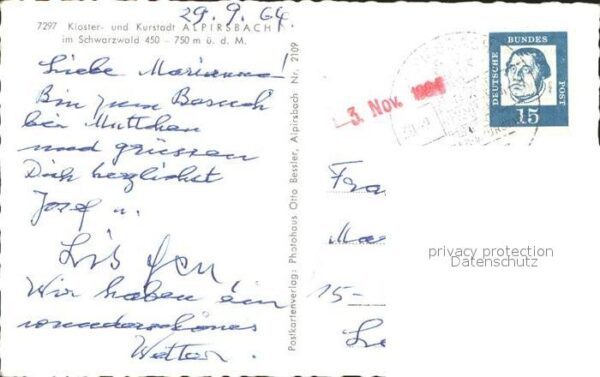 29. 9. 64.
7297 Kloster- und Kurstadt ALPIRSBACH
im Schwarzwald 450 – 750 m ü. d. M.
Liebe Marianne!
Bin zum Besuch
bei Muttchen
und grüssen
Dich herzlichst
Josef u.
Wir haben ein
wunderschönes
Wetter.
Postkartenverlag: Photohaus Otto Bessler, Alpirsbach Nr. 2109
3. Nov.
DEUTSCHE BUNDES POST
15
Fra
Ma
15-
privacy protection
Datenschutz